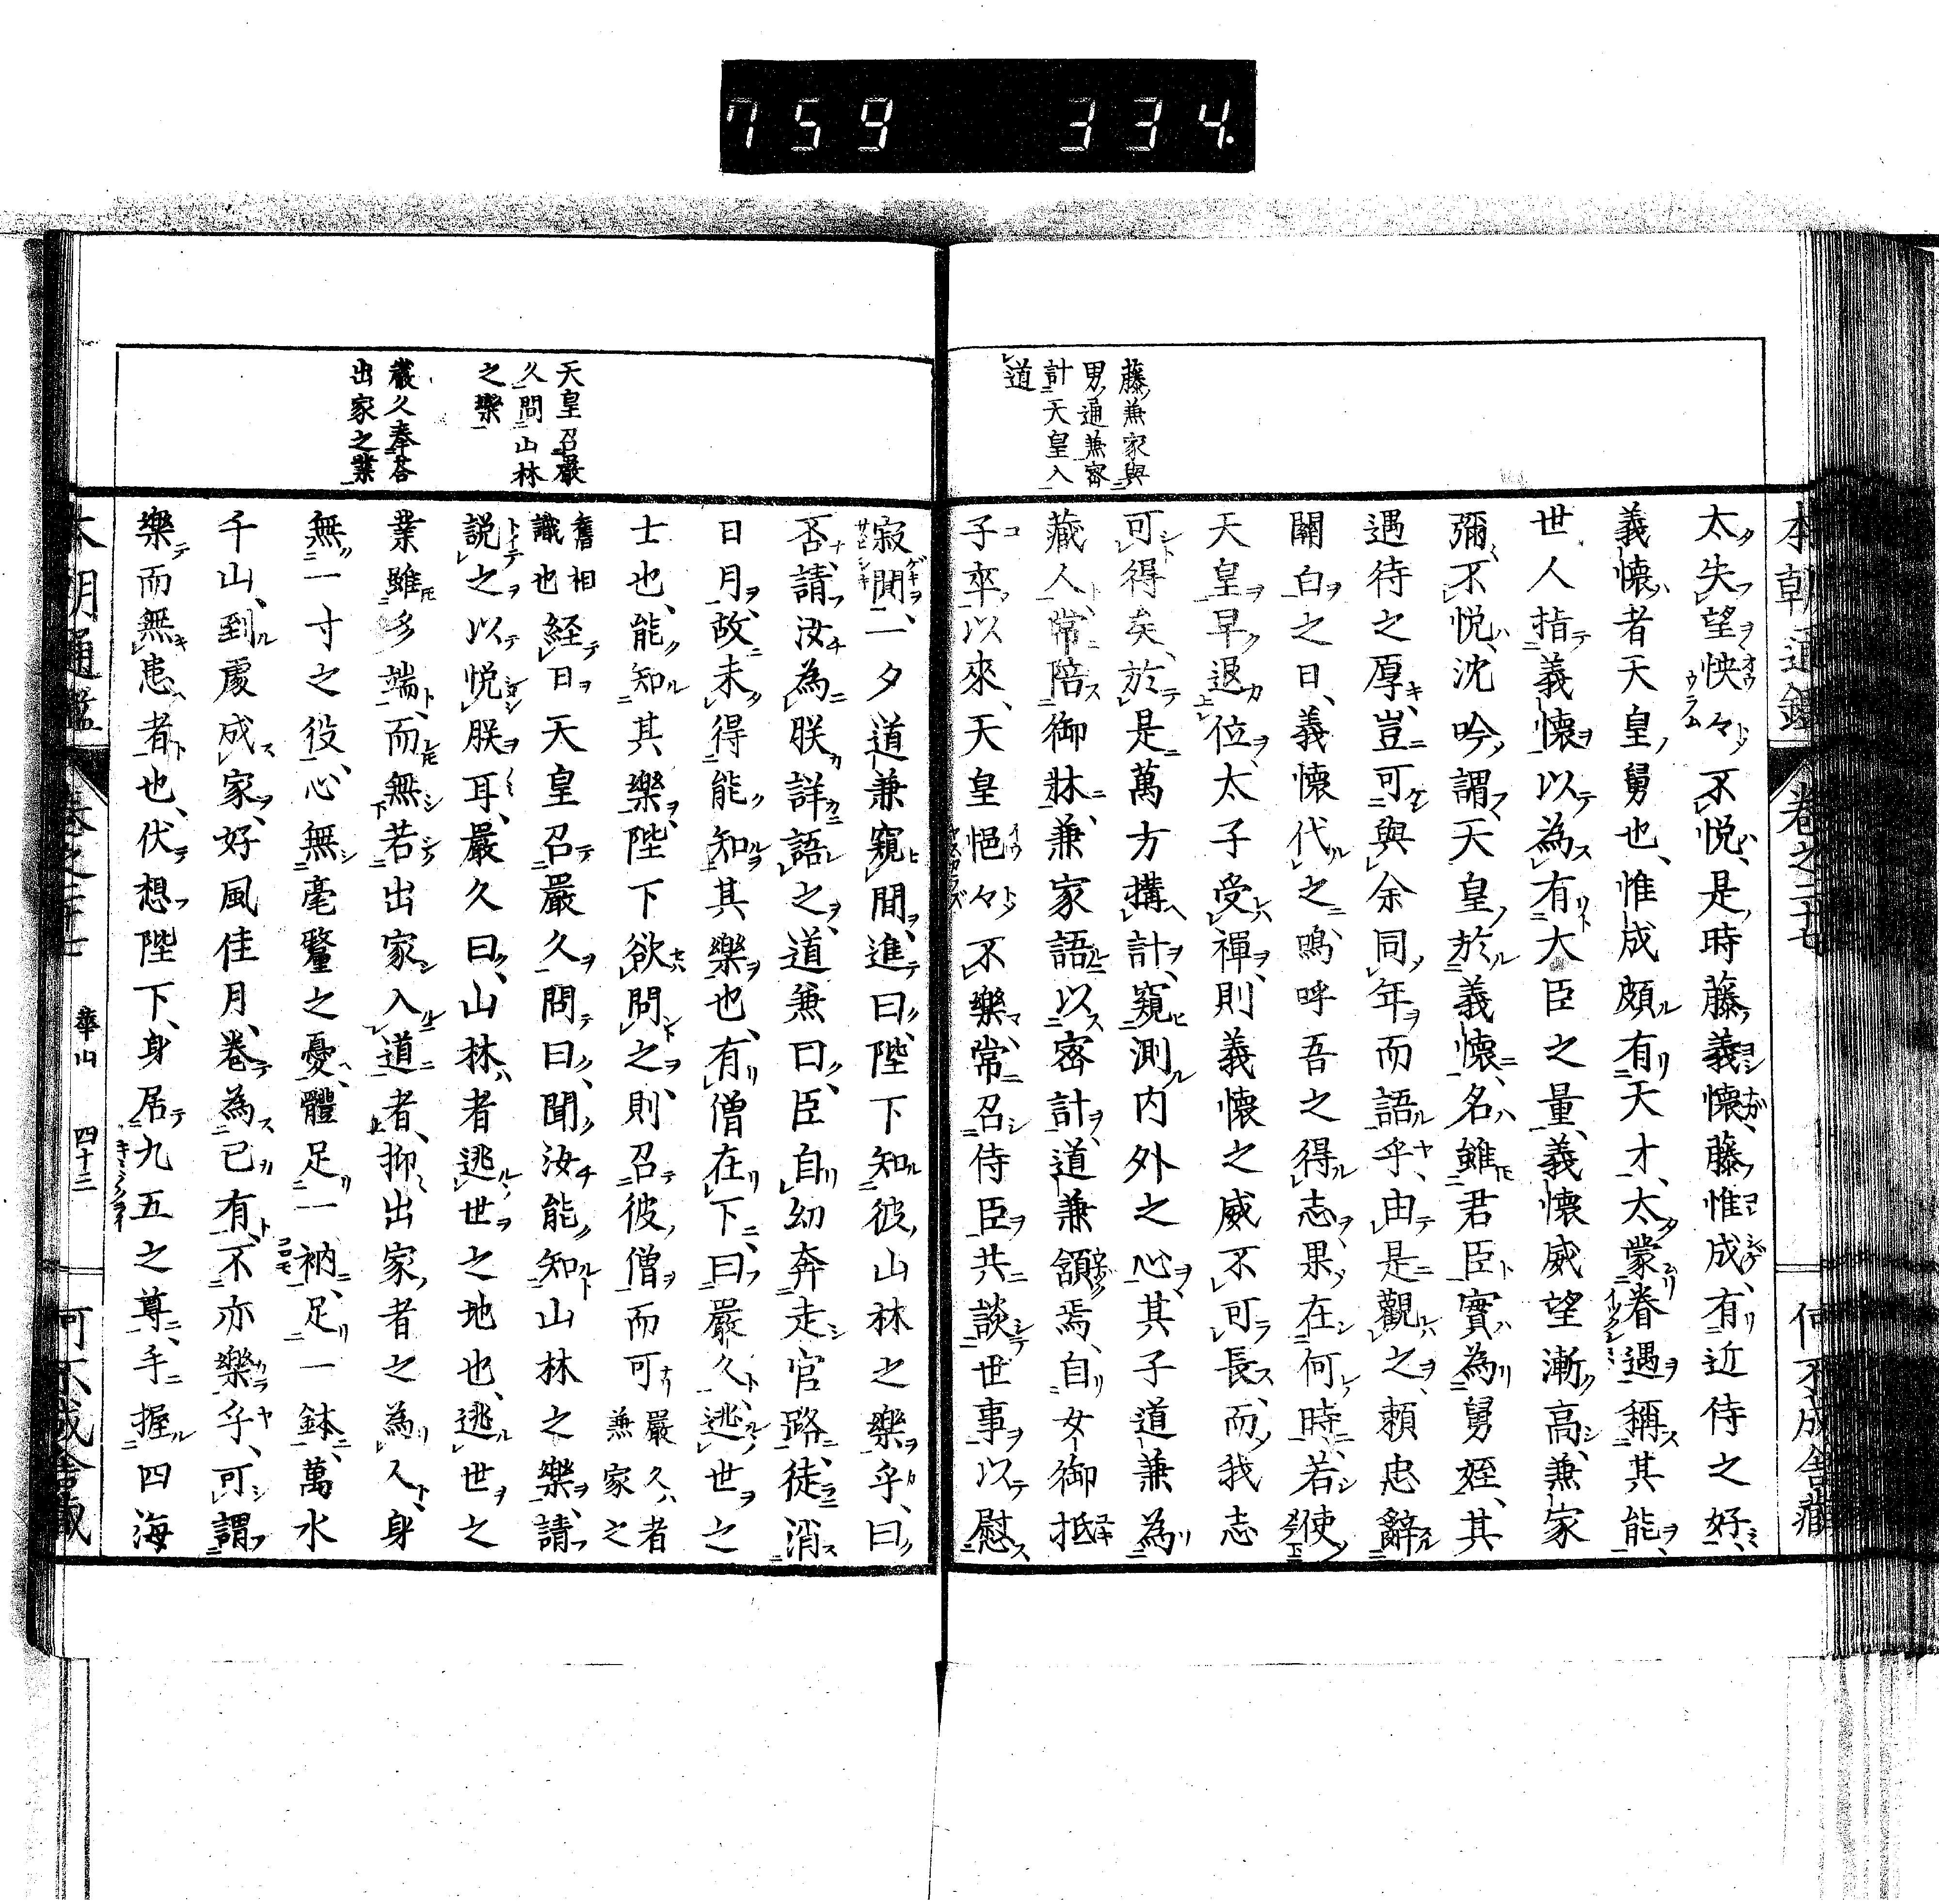 759 334.
本朝通鑑 卷之二十七 何不成舎藏
藤兼家與
男通兼密
計天皇入
道
太失望怏々不悦是時藤義懐藤惟成有近侍之好
義懐者天皇舅也惟成頗有天才太蒙眷遇稱其能
世人指義懐以為有大臣之量義懐威望漸高兼家
彌不悦沈吟謂天皇於義懐名雖君臣實為舅姪其
遇待之厚豈可與余同年而語乎由是觀之頼忠辭
關白之日義懐代之嗚呼吾之得志果在何時若使
天皇早退位太子受禪則義懐之威不可長而我志
可得矣於是萬方搆計窺測内外之心其子道兼為
藏人常陪御牀兼家語以密計道兼頷焉自女御抵
子卒以來天皇悒々不樂常召侍臣共談世事以慰
天皇召嚴
久問山林
之樂
嚴久奉荅
出家之業
寂閴一夕道兼窺間進曰陛下知彼山林之樂乎曰
否請汝為朕詳語之道兼曰臣自幼奔走官路徒消
日月故未得能知其樂也有僧在下曰嚴久逃世之
士也能知其樂陛下欲問之則召彼僧而可嚴久者兼家之
舊相識也経日天皇召嚴久問曰聞汝能知山林之樂請
説之以悦朕耳嚴久曰山林者逃世之地也逃世之
業雖多端而無若出家入道者抑出家者之為人身
無一寸之役心無毫釐之憂體足一衲足一鉢萬水
千山到處成家好風佳月卷為己有不亦樂乎可謂
樂而無患者也伏想陛下身居九五之尊手握四海
本朝通鑑 卷之二十七 華山 四十三 何不成舎藏